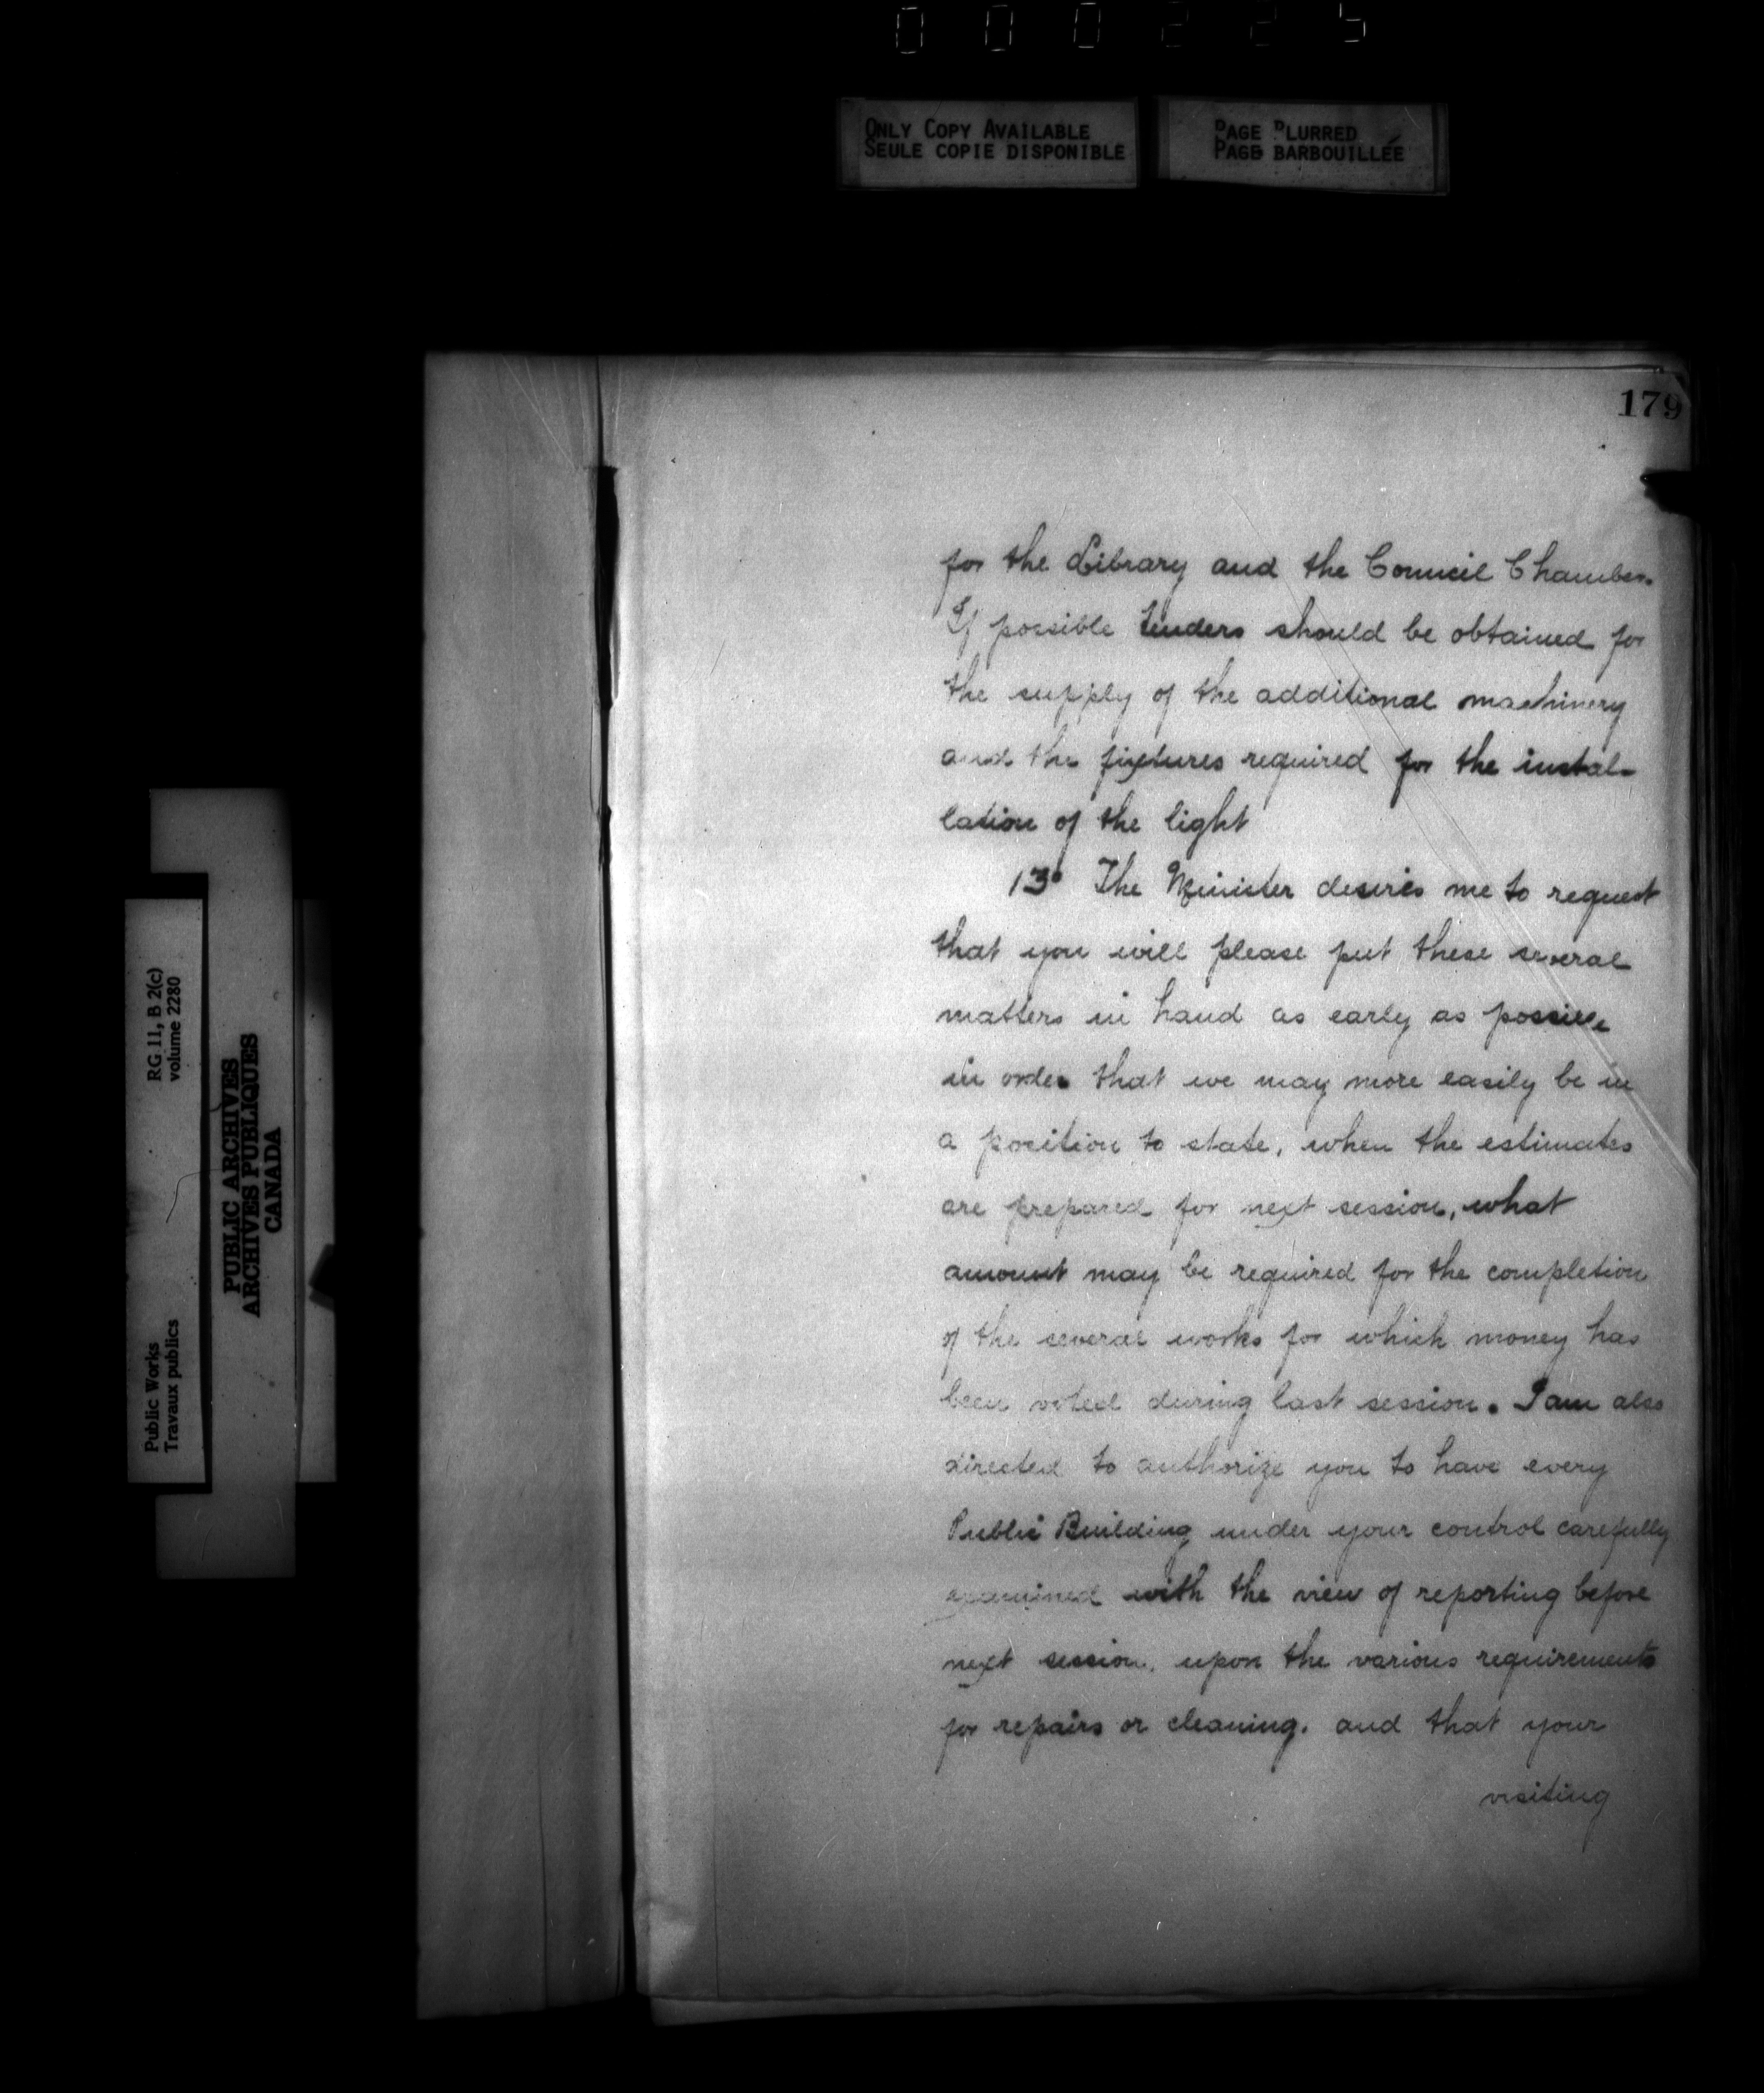 000225
ONLY COPY AVAILABLE
SEULE COPIE DISPONIBLE
PAGE BLURRED
PAGE BARBOUILLÉE
179
for the Library and the Council Chamber.
If possible tenders should be obtained for
the supply of the additional machinery
and the fixtures required for the instal-
lation of the light
13° The Minister desires me to request
that you will please put these several
matters in hand as early as possible
in order that we may more easily be in
a position to state, when the estimates
are prepared for next session, what
amount may be required for the completion
of the several works for which money has
been voted during last session. I am also
directed to authorize you to have every
Public Building under your control carefully
examined with the view of reporting before
next session, upon the various requirements
for repairs or cleaning. and that your
visiting
RG 11, B 2(c)
volume 2280
Public Works
Travaux publics
PUBLIC ARCHIVES
ARCHIVES PUBLIQUES
CANADA